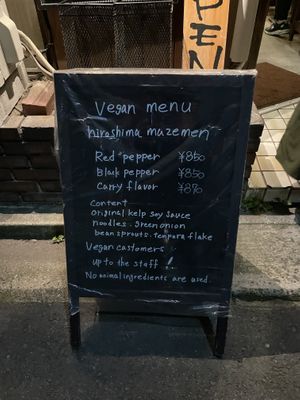 PEN
Vegan menu
hiroshima mazemen
Red pepper ¥850
Black pepper ¥850
Carry flavor ¥870
Content
original kelp soy sauce
noodles. green onion
bean sprouts. tempura flake
Vegan customers
up to the staff!!
No animal ingredients are used.